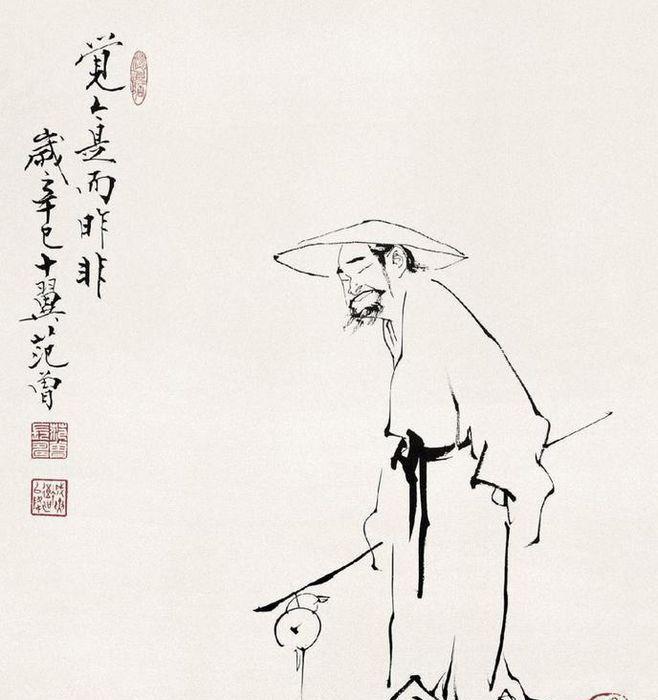 觉今是而昨非
歲辛巳十翼范曾